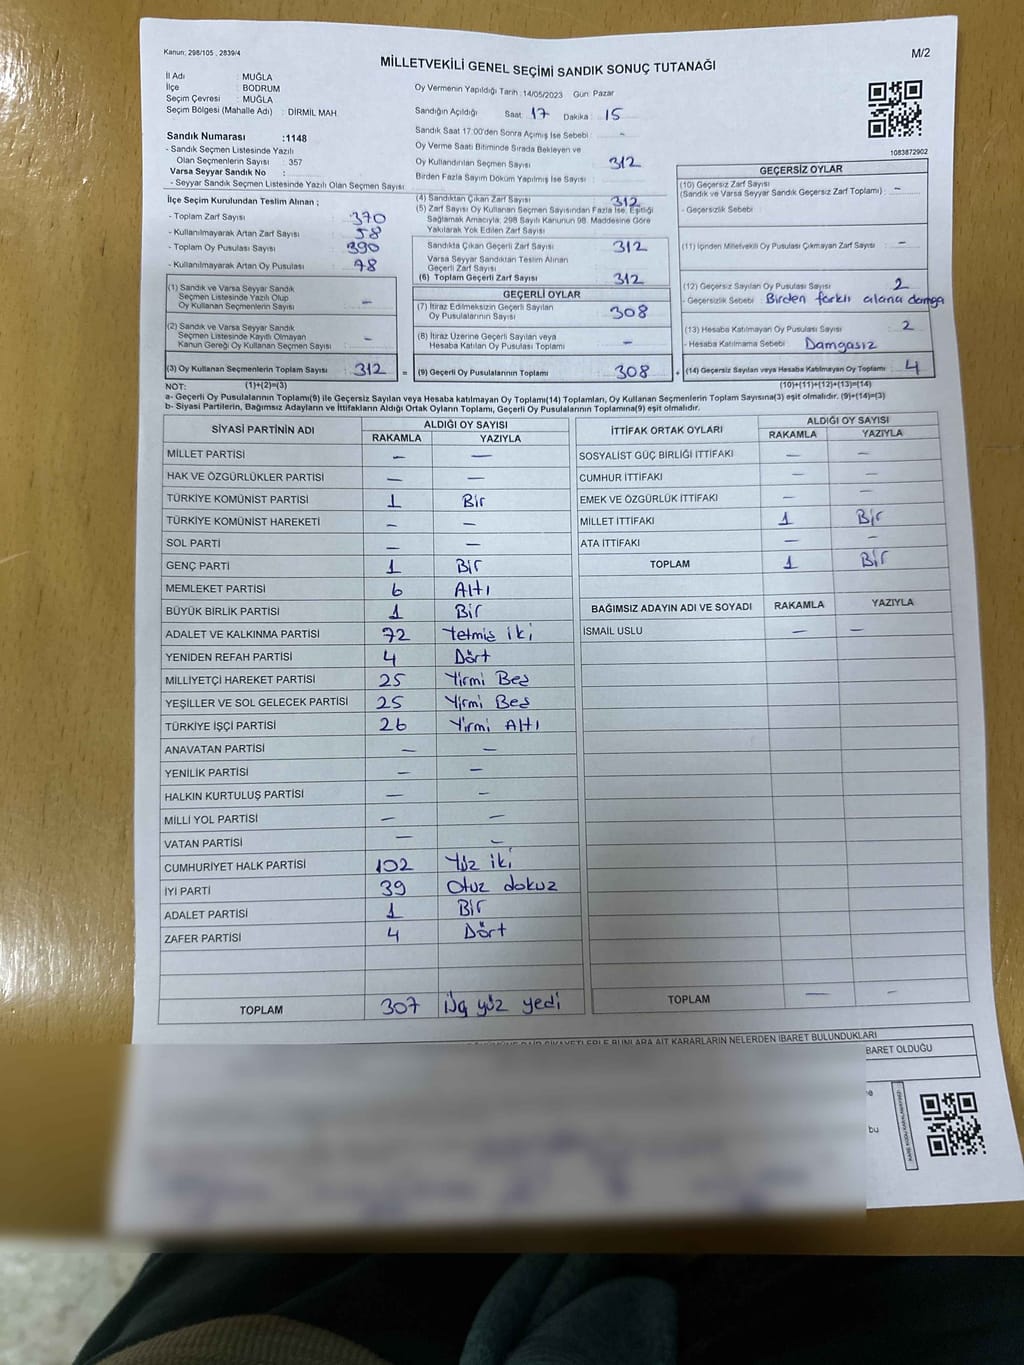 Kanun: 298/105 , 2839/4
M/2
MİLLETVEKİLİ GENEL SEÇİMİ SANDIK SONUÇ TUTANAĞI
İl Adı : MUĞLA
İlçe : BODRUM
Seçim Çevresi : MUĞLA
Seçim Bölgesi (Mahalle Adı) : DİRMİL MAH.
Sandık Numarası :1148
- Sandık Seçmen Listesinde Yazılı
Olan Seçmenlerin Sayısı : 357
Varsa Seyyar Sandık No :
- Seyyar Sandık Seçmen Listesinde Yazılı Olan Seçmen Sayısı
İlçe Seçim Kurulundan Teslim Alınan ;
- Toplam Zarf Sayısı : 370
- Kullanılmayarak Artan Zarf Sayısı : 58
- Toplam Oy Pusulası Sayısı : 390
- Kullanılmayarak Artan Oy Pusulası : 78
(1) Sandık ve Varsa Seyyar Sandık
Seçmen Listesinde Yazılı Olup
Oy Kullanan Seçmenlerin Sayısı : –
(2) Sandık ve Varsa Seyyar Sandık
Seçmen Listesinde Kayıtlı Olmayan
Kanun Gereği Oy Kullanan Seçmen Sayısı : –
(3) Oy Kullanan Seçmenlerin Toplam Sayısı : 312 =
Oy Vermenin Yapıldığı Tarih :14/05/2023 Gün: Pazar
Sandığın Açıldığı Saat : 17 Dakika : 15
Sandık Saat 17:00'den Sonra Açımış İse Sebebi : –
Oy Verme Saati Bitiminde Sırada Bekleyen ve
Oy Kullandırılan Seçmen Sayısı : 312
Birden Fazla Sayım Döküm Yapılmış İse Sayısı :
(4) Sandıktan Çıkan Zarf Sayısı : 312
(5) Zarf Sayısı Oy Kullanan Seçmen Sayısından Fazla İse, Eşitliği
Sağlamak Amacıyla, 298 Sayılı Kanunun 98. Maddesine Göre
Yakılarak Yok Edilen Zarf Sayısı :
Sandıkta Çıkan Geçerli Zarf Sayısı : 312
Varsa Seyyar Sandıktan Teslim Alınan
Geçerli Zarf Sayısı
(6) Toplam Geçerli Zarf Sayısı : 312
GEÇERLİ OYLAR
(7) İtiraz Edilmeksizin Geçerli Sayılan
Oy Pusulalarının Sayısı : 308
(8) İtiraz Üzerine Geçerli Sayılan veya
Hesaba Katılan Oy Pusulası Toplamı : –
(9) Geçerli Oy Pusulalarının Toplamı : 308 +
1083872902
GEÇERSİZ OYLAR
(10) Geçersiz Zarf Sayısı
(Sandık ve Varsa Seyyar Sandık Geçersiz Zarf Toplamı) : –
- Geçersizlik Sebebi :
(11) İçinden Milletvekili Oy Pusulası Çıkmayan Zarf Sayısı : –
(12) Geçersiz Sayılan Oy Pusulası Sayısı : 2
- Geçersizlik Sebebi : Birden farklı alana damga
(13) Hesaba Katılmayan Oy Pusulası Sayısı : 2
- Hesaba Katılmama Sebebi : Damgasız
(14) Geçersiz Sayılan veya Hesaba Katılmayan Oy Toplamı : 4
NOT: (1)+(2)=(3) (10)+(11)+(12)+(13)=(14)
a- Geçerli Oy Pusulalarının Toplamı(9) ile Geçersiz Sayılan veya Hesaba katılmayan Oy Toplamı(14) Toplamları, Oy Kullanan Seçmenlerin Toplam Sayısına(3) eşit olmalıdır. (9)+(14)=(3)
b- Siyasi Partilerin, Bağımsız Adayların ve İttifakların Aldığı Ortak Oyların Toplamı, Geçerli Oy Pusulalarının Toplamına(9) eşit olmalıdır.
SİYASİ PARTİNİN ADI ALDIĞI OY SAYISI
RAKAMLA YAZIYLA
MİLLET PARTİSİ – –
HAK VE ÖZGÜRLÜKLER PARTİSİ – –
TÜRKİYE KOMÜNİST PARTİSİ 1 Bir
TÜRKİYE KOMÜNİST HAREKETİ – –
SOL PARTİ – –
GENÇ PARTİ 1 Bir
MEMLEKET PARTİSİ 6 Altı
BÜYÜK BİRLİK PARTİSİ 1 Bir
ADALET VE KALKINMA PARTİSİ 72 Yetmiş iki
YENİDEN REFAH PARTİSİ 4 Dört
MİLLİYETÇİ HAREKET PARTİSİ 25 Yirmi Beş
YEŞİLLER VE SOL GELECEK PARTİSİ 25 Yirmi Beş
TÜRKİYE İŞÇİ PARTİSİ 26 Yirmi Altı
ANAVATAN PARTİSİ – –
YENİLİK PARTİSİ – –
HALKIN KURTULUŞ PARTİSİ – –
MİLLİ YOL PARTİSİ – –
VATAN PARTİSİ – –
CUMHURİYET HALK PARTİSİ 102 Yüz iki
İYİ PARTİ 39 Otuz dokuz
ADALET PARTİSİ 1 Bir
ZAFER PARTİSİ 4 Dört
TOPLAM 307 Üç yüz yedi
İTTİFAK ORTAK OYLARI ALDIĞI OY SAYISI
RAKAMLA YAZIYLA
SOSYALİST GÜÇ BİRLİĞİ İTTİFAKI – –
CUMHUR İTTİFAKI – –
EMEK VE ÖZGÜRLÜK İTTİFAKI – –
MİLLET İTTİFAKI 1 Bir
ATA İTTİFAKI – –
TOPLAM 1 Bir
BAĞIMSIZ ADAYIN ADI VE SOYADI RAKAMLA YAZIYLA
İSMAİL USLU – –
TOPLAM – –
ŞİKAYETLERLE BUNLARA AİT KARARLARIN NELERDEN İBARET BULUNDUKLARI
BARET OLDUĞU
bu